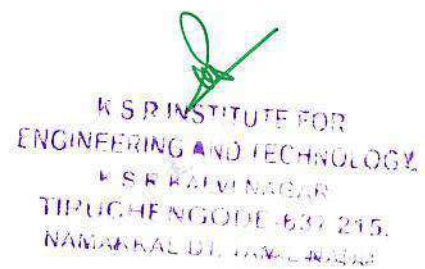 K S R INSTITUTE FOR
ENGINEERING AND TECHNOLOGY,
K S R KALVI NAGAR
TIRUCHENGODE-637 215.
NAMAKKAL DT. TAMIL NADU